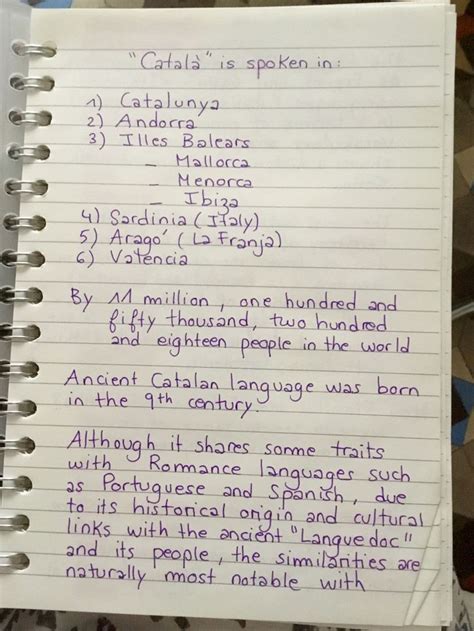 "Català" is spoken in:
1) Catalunya
2) Andorra
3) Illes Balears
– Mallorca
– Menorca
– Ibiza
4) Sardinia (Italy)
5) Aragó (La Franja)
6) Valencia
By 11 million, one hundred and
fifty thousand, two hundred
and eighteen people in the world
Ancient Catalan language was born
in the 9th century.
Although it shares some traits
with Romance languages such
as Portuguese and Spanish, due
to its historical origin and cultural
links with the ancient "Langue doc"
and its people, the similarities are
naturally most notable with